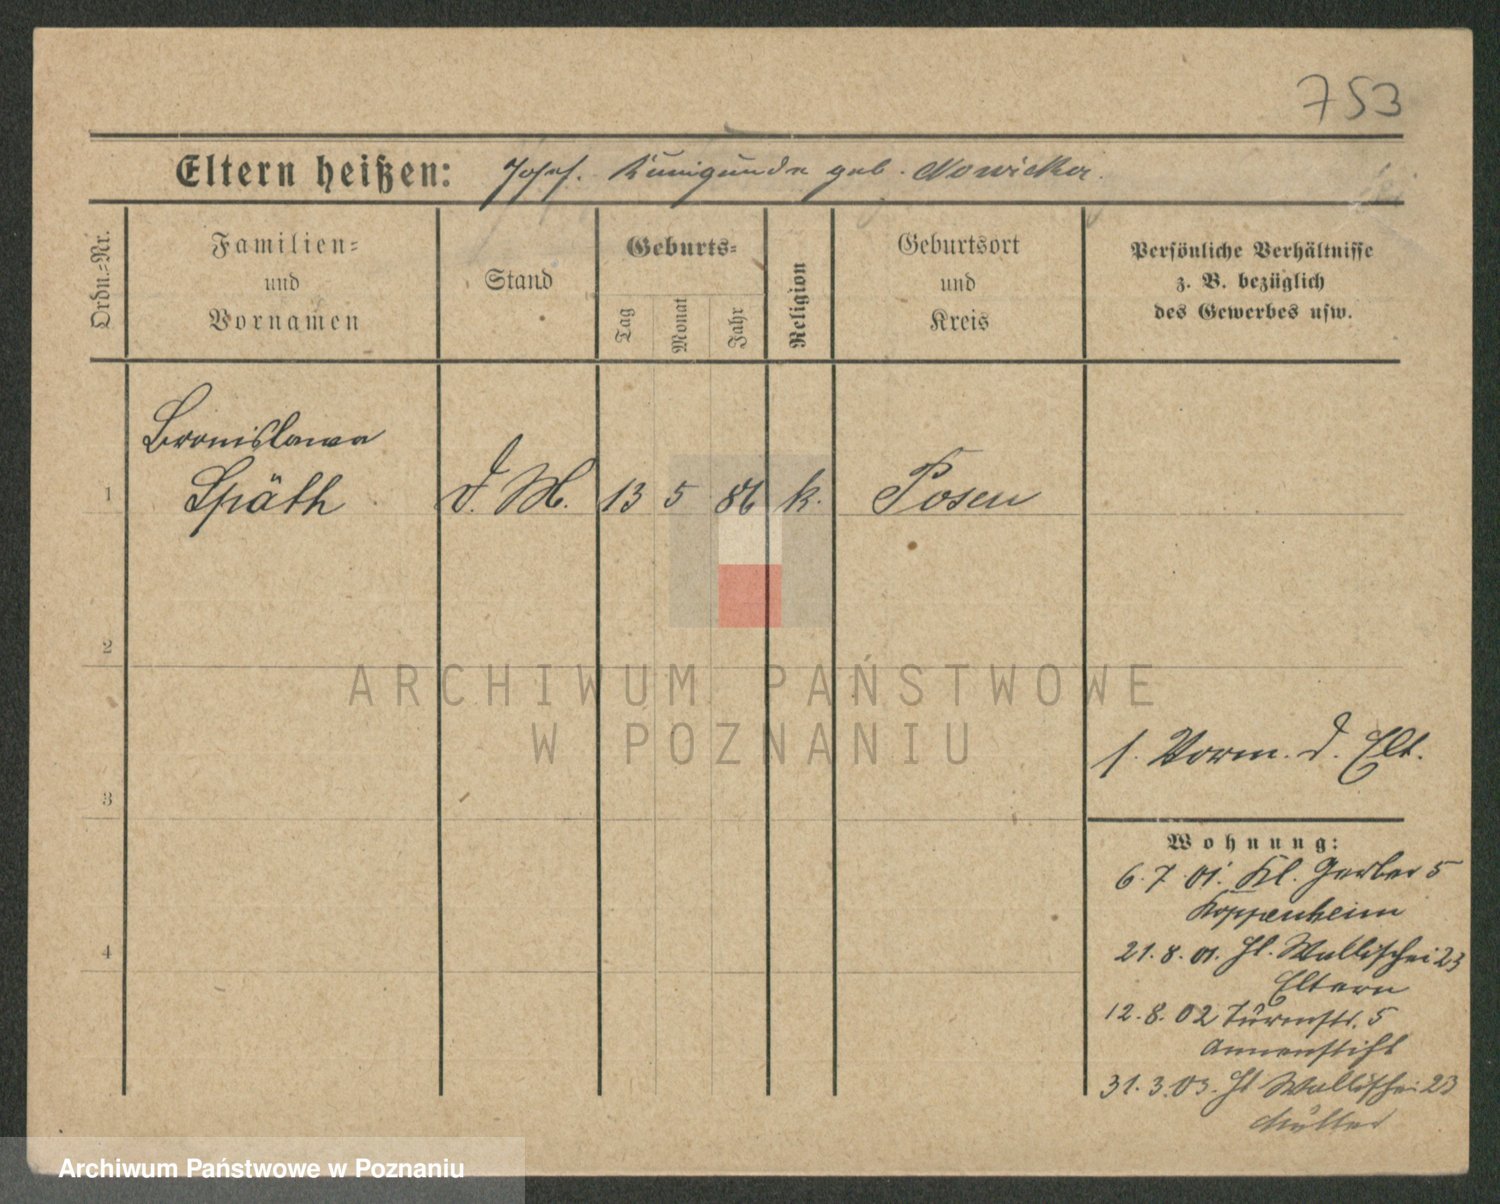 753
Eltern heißen: Josef. Kunigunde geb. Nowicka.
Ordn.-Nr.
Familien-
und
Vornamen
Stand
Geburts-
Tag
Monat
Jahr
Religion
Geburtsort
und
Kreis
Persönliche Verhältnisse
z. B. bezüglich
des Gewerbes usw.
Bronislawa
1 Späth d. M. 13 5 86 k. Posen
2
ARCHIWUM PAŃSTWOWE
W POZNANIU
1. Vorm. d. Elt.
3
Wohnung:
6.7.01. Kl. Gerber 5
Koppenheim
21.8.01. Wallischei 23
4
Eltern
12.8.02 5
Annenstift
31.3.03. Wallischei 23
Mutter
Archiwum Państwowe w Poznaniu